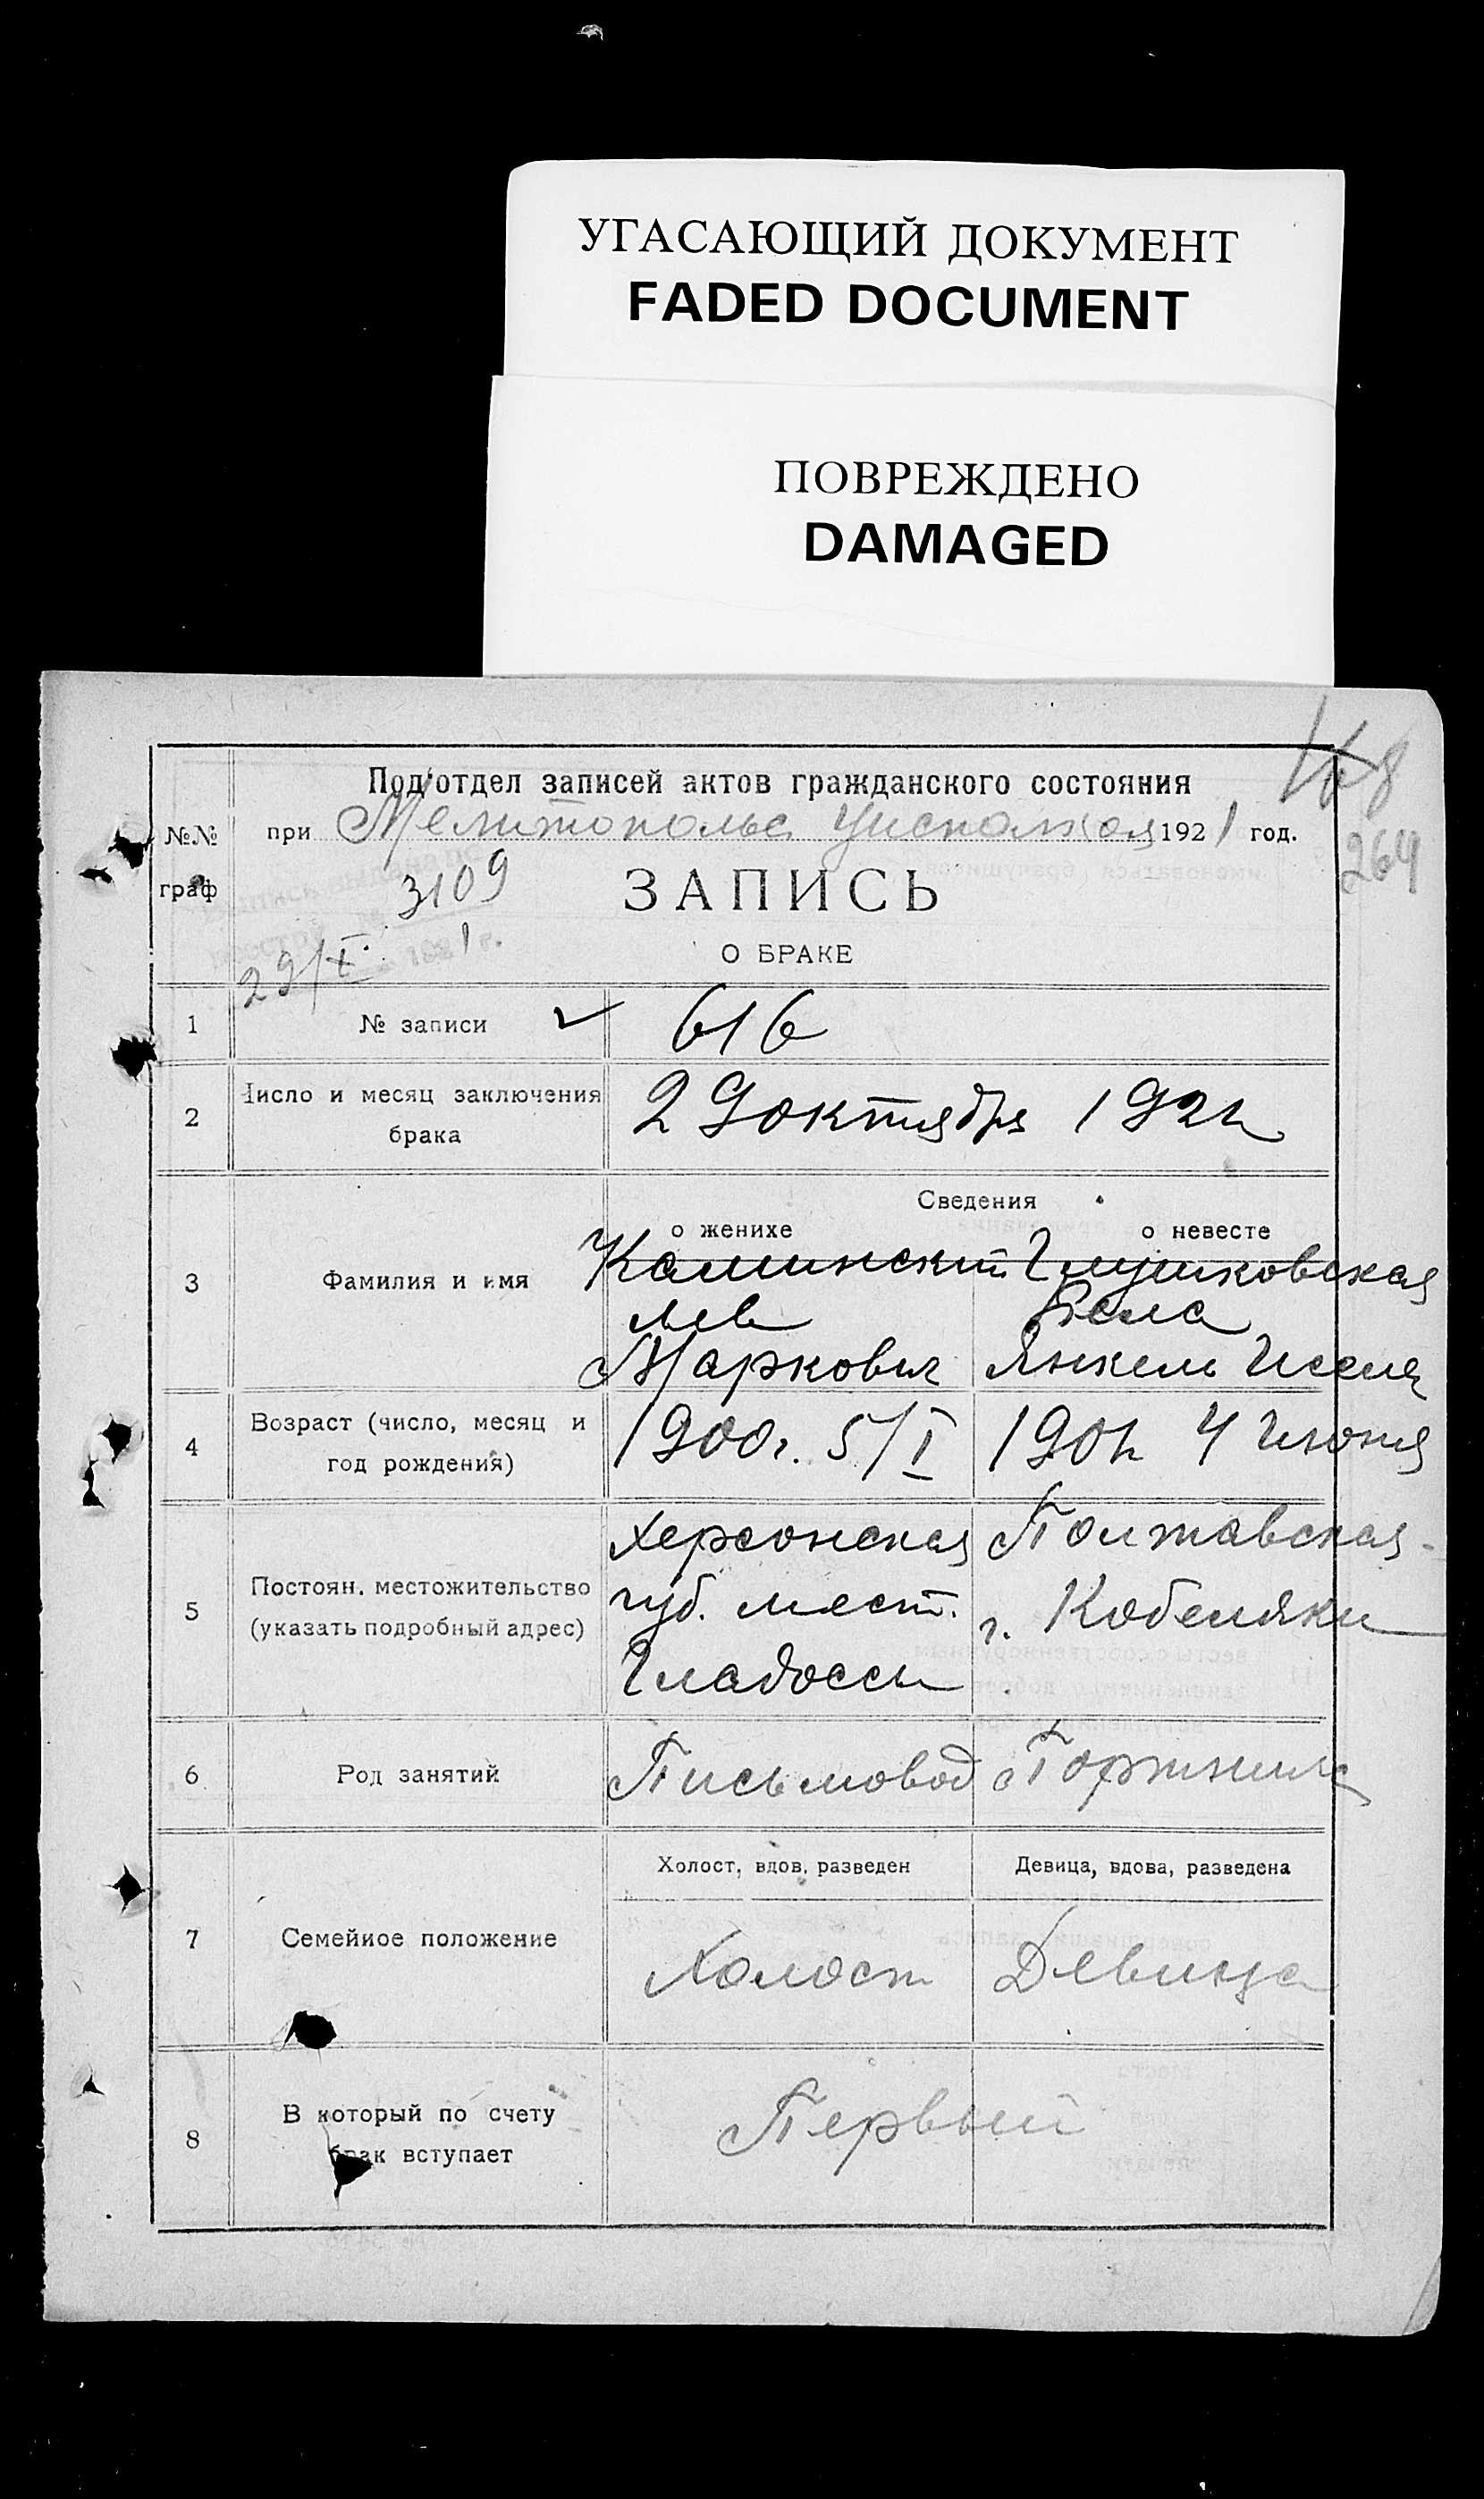 УГАСАЮЩИЙ ДОКУМЕНТ
FADED DOCUMENT
ПОВРЕЖДЕНО
DAMAGED
168
264
Под'отдел записей актов гражданского состояния
№№ граф
при Мелитопольс. Уисполком 1921 год.
3109
29/X. 1921 г.
ЗАПИСЬ
О БРАКЕ
1 № записи 616
2 Число и месяц заключения брака 29 октября 1921
Сведения
о женихе о невесте
3 Фамилия и имя
Каминский Глушковская
Лев Бела
Маркович Янкель Иселя
4 Возраст (число, месяц и год рождения) 1900г. 5/I 1901 4 Июня
5 Постоян. местожительство (указать подробный адрес)
Херсонская Полтавская
губ. мест. г. Кобеляки
Гладоссы
6 Род занятий Письмовод Портниха
7 Семейное положение
Холост, вдов, разведен Девица, вдова, разведена
Холост Девица
8 В который по счету брак вступает Первый